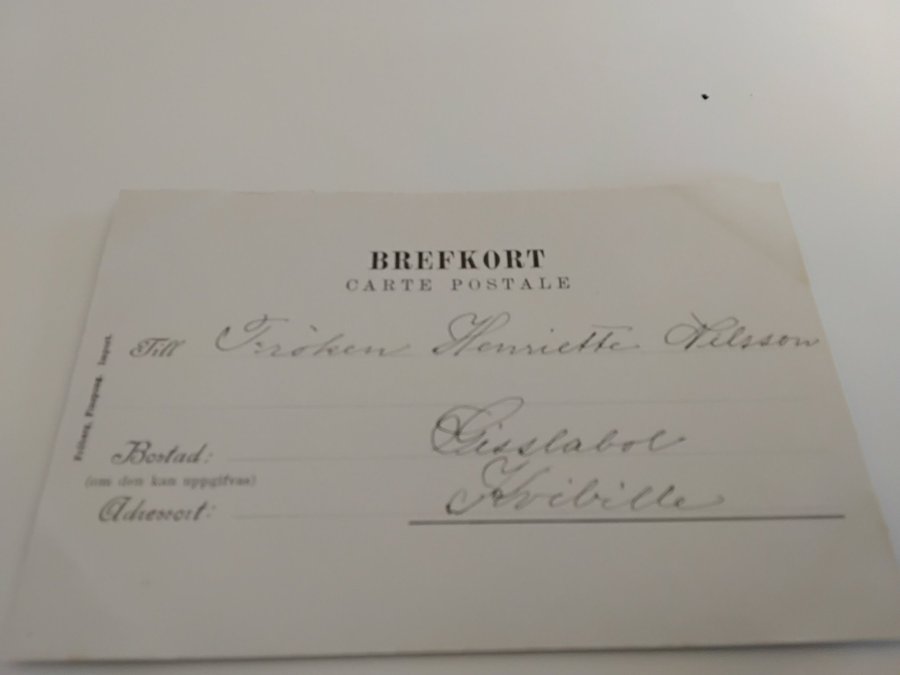 BREFKORT
CARTE POSTALE
Till Fröken Henriette Nilsson
Bostad: Gisslabol
(om den kan uppgifvas)
Adressort: Kvibille
Import.